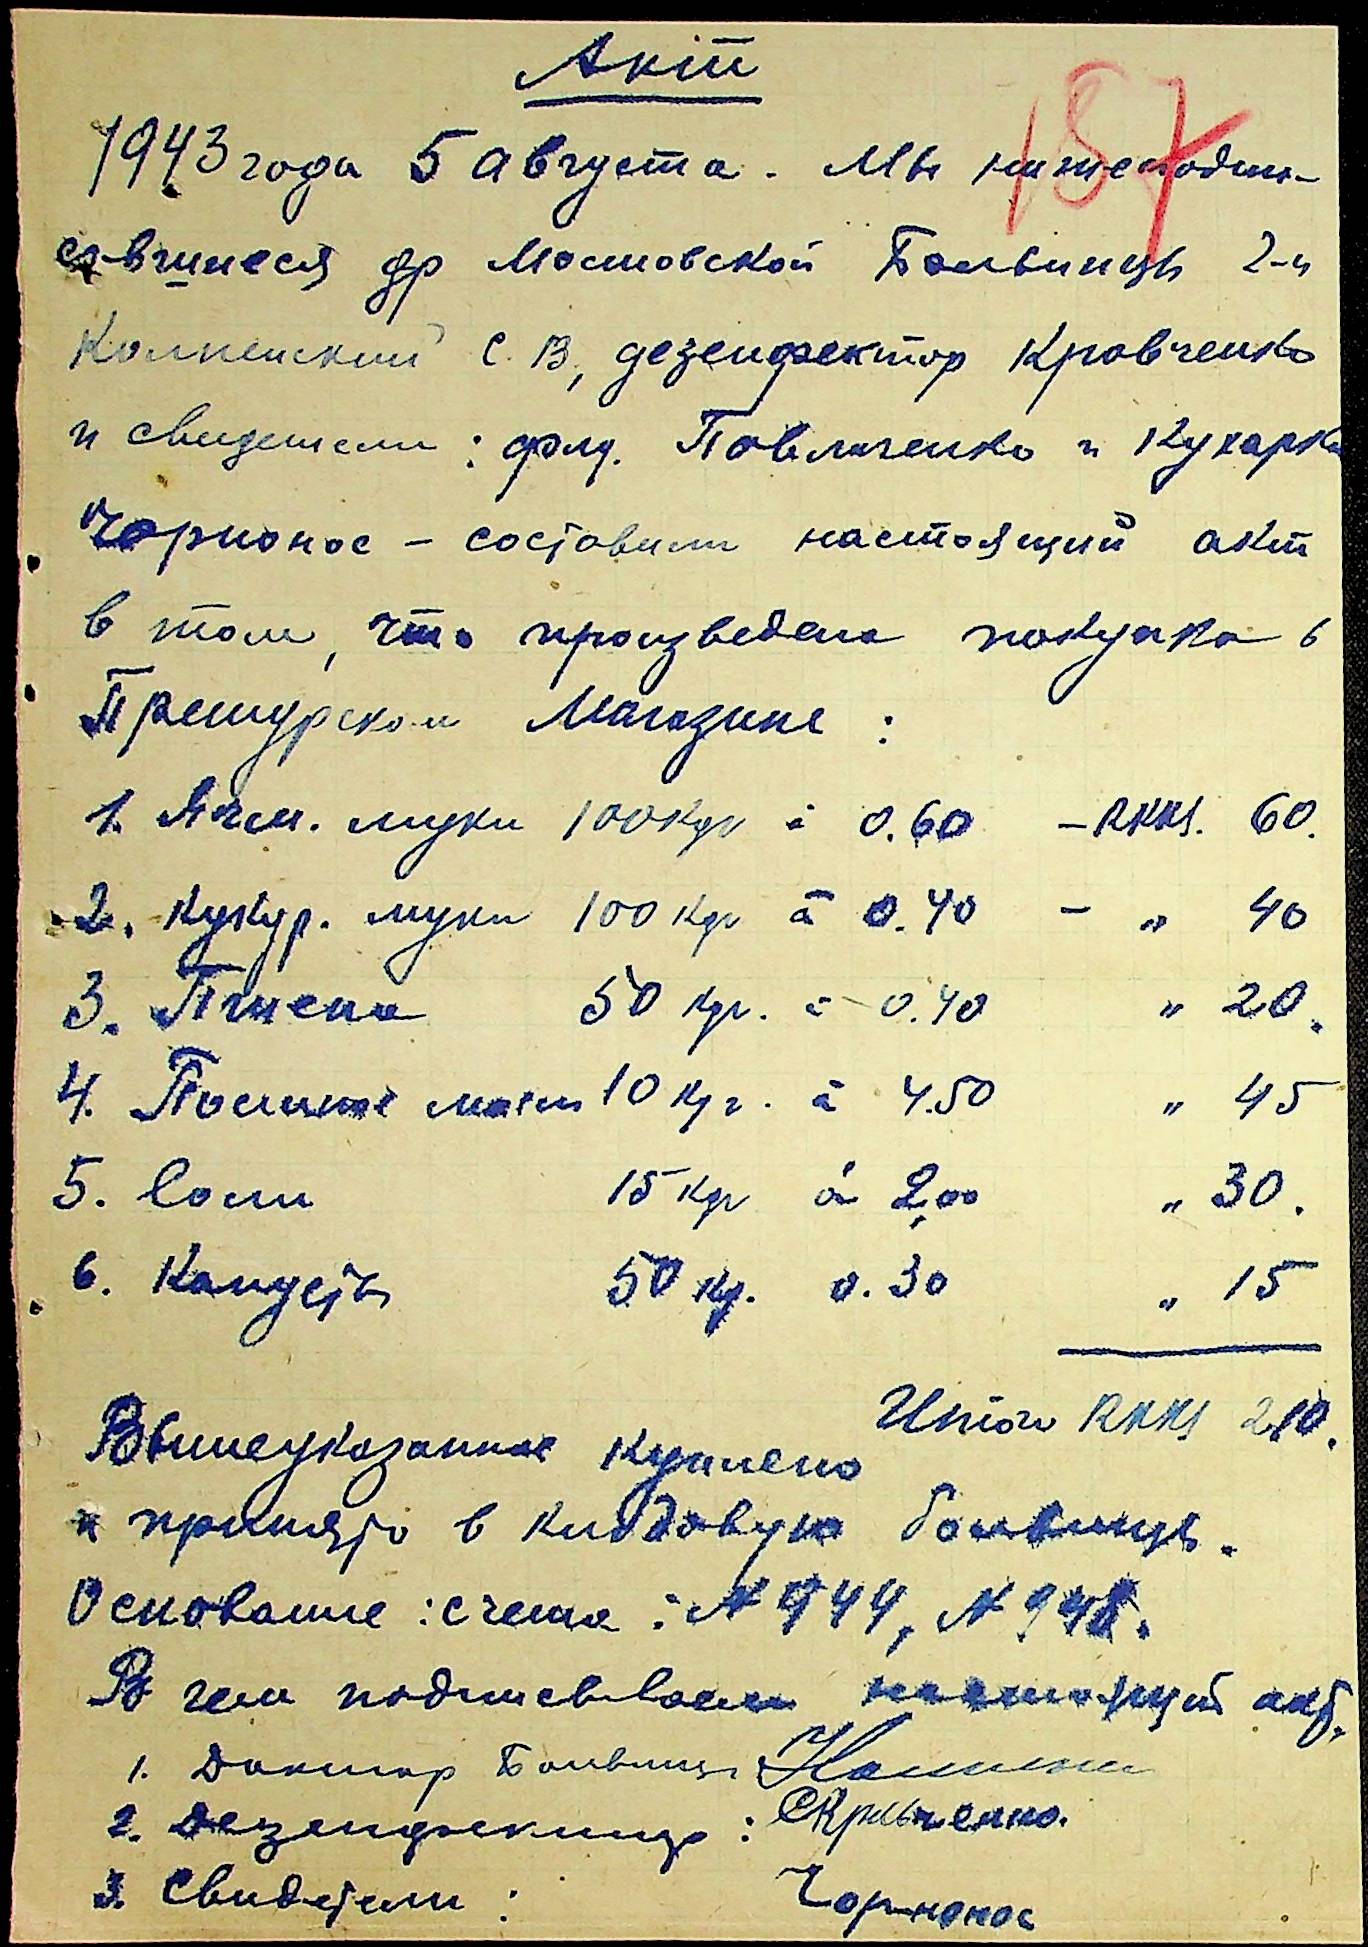 Акт
157
1943 года 5 августа. Мы нижеподпи-
савшиеся др Мостовской Больницы г-н
С. В, дезенфектор Кравченко
и свидетели: флд. Павличенко и Кухарка
Чорнонос – составили настоящий акт
в том, что произведена покупка в
Пришурском Магазине :
1. Ячм. муки 100 кгр à 0.60 – RKKS. 60.
2. Кукур. муки 100 кгр à 0.40 – „ 40
3. Пшена 50 кгр. à 0.40 „ 20.
4. Постное масло 10 кгр. à 4.50 „ 45
5. Соли 15 кгр à 2,00 „ 30.
6. Капусты 50 кг. 0.30 „ 15
Итого RKKS 210.
Вышеуказанное куплено
и принято в кладовую больницы.
Основание : счета : № 944, № 948.
В чем подписываем настоящий акт.
1. Доктор Больницы
2. Дезенфектор : Кравченко.
3. Свидетели : Чорнонос